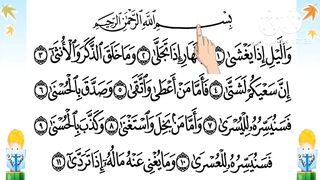 بِسْمِ اللَّهِ الرَّحْمَٰنِ الرَّحِيمِ
وَاللَّيْلِ إِذَا يَغْشَىٰ ١ إِذَا تَجَلَّىٰ ٢ وَمَا خَلَقَ الذَّكَرَ وَالْأُنثَىٰ ٣
إِنَّ سَعْيَكُمْ لَشَتَّىٰ ٤ فَأَمَّا مَنْ أَعْطَىٰ وَاتَّقَىٰ ٥ وَصَدَّقَ بِالْحُسْنَىٰ ٦
فَسَنُيَسِّرُهُ لِلْيُسْرَىٰ ٧ وَأَمَّا مَن بَخِلَ وَاسْتَغْنَىٰ ٨ وَكَذَّبَ بِالْحُسْنَىٰ ٩
فَسَنُيَسِّرُهُ لِلْعُسْرَىٰ ١٠ وَمَا يُغْنِي عَنْهُ مَالُهُ إِذَا تَرَدَّىٰ ١١